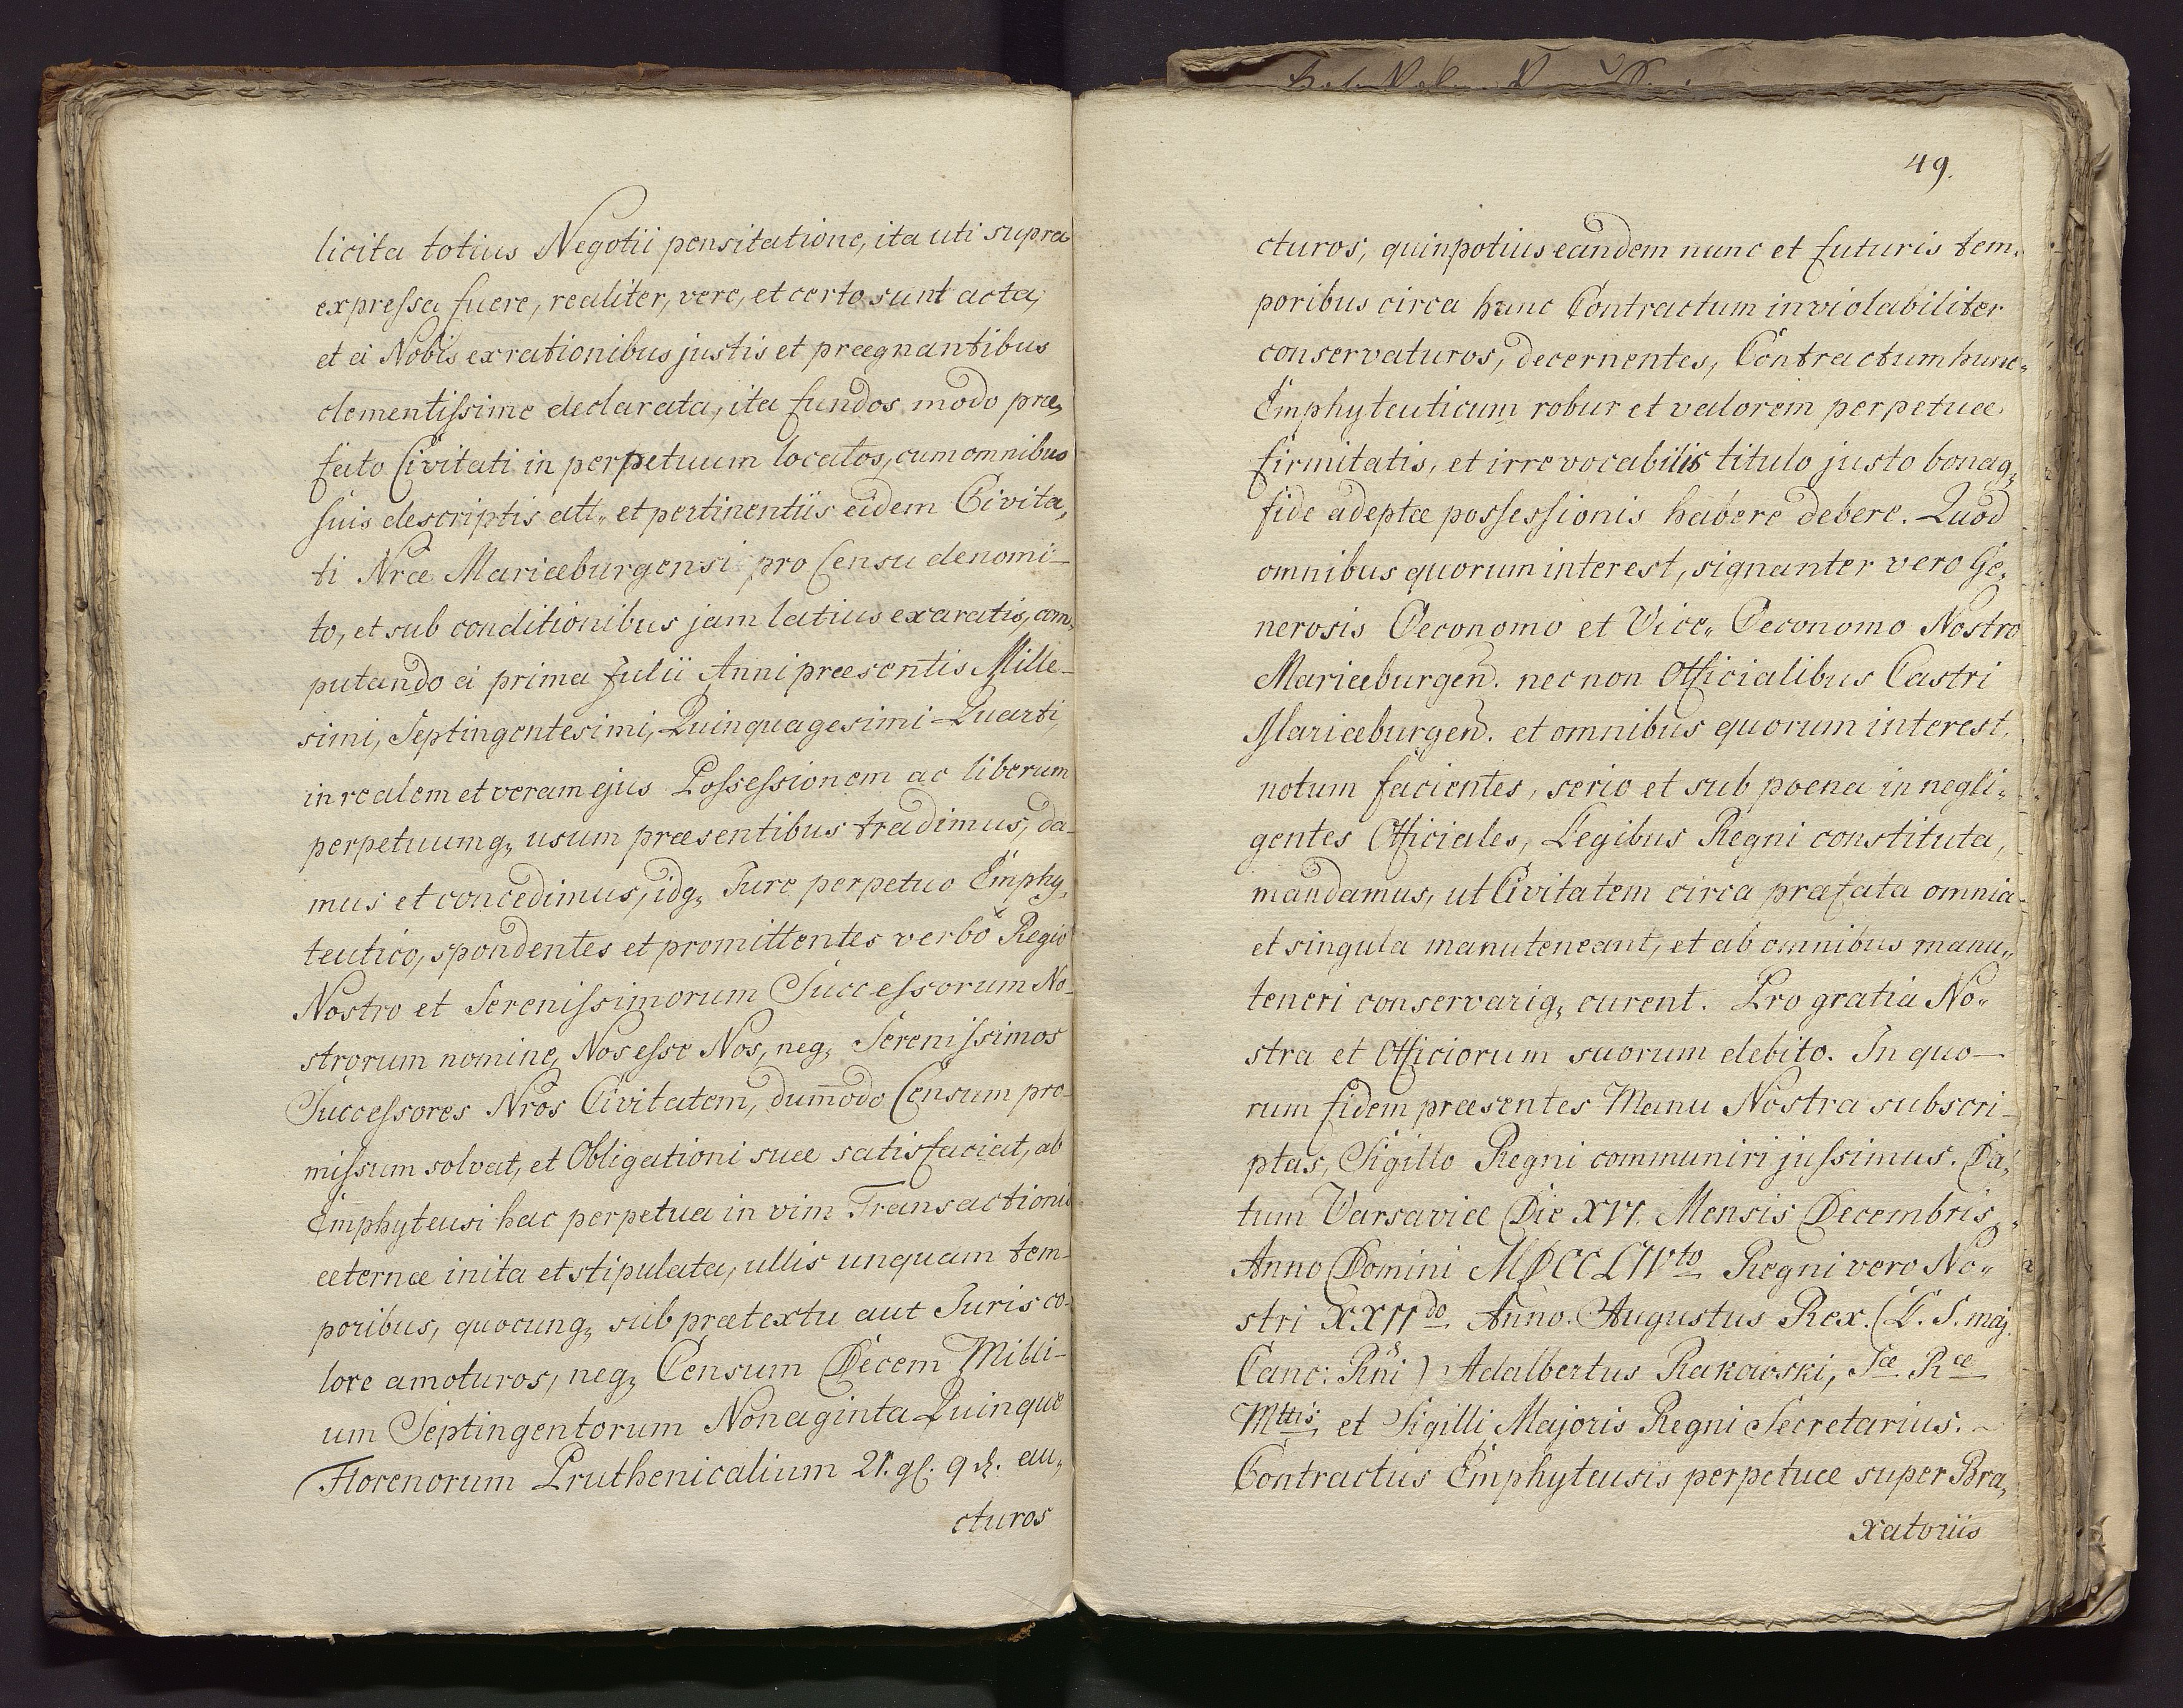 licita totius Negotii pensitatione, ita uti supra
expressa fuere, realiter, vere, et certo sunt acta,
et a Nobis ex rationibus justis et prægnantibus
clementissime declarata, ita fundos modo præ„
fato Civitati in perpetuum locatos, cum omnibus
suis descriptis att„ et pertinentiis eidem Civita„
ti Nræ Mariæburgensi pro Censu denomi-
to, et sub conditionibus jam latius exaratis, com„
putando a prima Julii Anni præsentis Mille-
simi, Septingentesimi, Quinquagesimi Quarti,
in realem et veram ejus Possessionem ac liberum
perpetuumq₃ usum præsentibus tradimus, da-
mus et concedimus, idq₃ Jure perpetuo Emphy„
teutico, spondentes et promittentes verbo Regio
Nostro et Serenissimorum Successorum No-
strorum nomine, Nos esse Nos, neq₃ Serenissimos
Successores Nros Civitatem, dummodo Censum pro-
missum solvat, et Obligationi suæ satisfaciat, ab
Emphyteusi hac perpetua in vim Transactionis
æternæ inita et stipulata, ullis unquam tem-
poribus, quocunq₃ sub prætextu aut Juris co-
lore amoturos, neq₃ Censum Decem Milli-
um Septingentorum Nonaginta Quinque
Florenorum Pruthenicalium 21. gl. 9 d. au„
cturos
49.
cturos, quinpotius eandem nunc et futuris tem„
poribus circa hunc Contractum inviolabiliter
conservaturos, decernentes, Contractum hunc
Emphyteuticum robur et valorem perpetuæ
firmitatis, et irrevocabilis titulo justo bonaq₃
fide adeptæ possessionis habere debere. Quod
omnibus quorum interest, signanter vero Ge„
nerosis Oeconomo et Vice„ Oeconomo Nostro
Mariæburgen. nec non Officialibus Castri
Mariæburgen. et omnibus quorum interest,
notum facientes, serio et sub poena in negli„
gentes Officiales, Legibus Regni constituta,
mandamus, ut Civitatem circa præfata omnia
et singula manuteneant, et ab omnibus manu„
teneri conservariq₃ curent. Pro gratia No„
stra et Officiorum suorum debito. In quo-
rum fidem præsentes Manu Nostra subscri-
ptas, Sigillo Regni communiri jussimus. Da„
tum Varsaviæ Die XVI. Mensis Decembris
Anno Domini MDCCLIVto Regni vero No„
stri XXIIdo Anno. Augustus Rex. (L. S. maj.
Canc: Rni) Adalbertus Rakowski, Sæ Ræ
Mttis et Sigilli Majoris Regni Secretarius. ~
Contractus Emphyteusis perpetuæ super Bra„
xatoriis